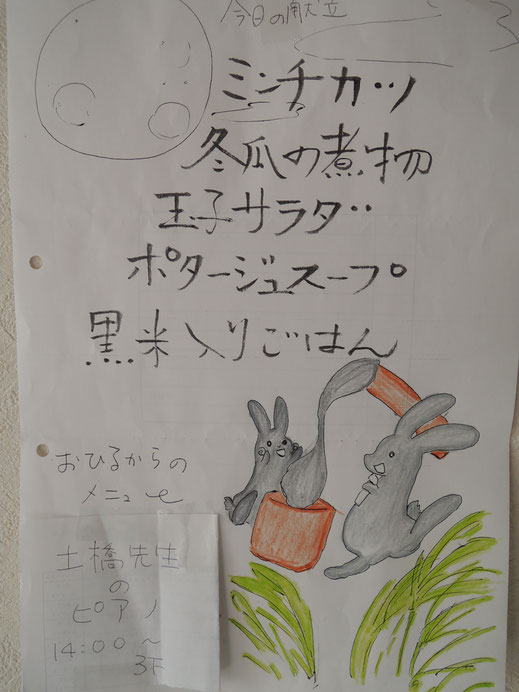 今日の献立
ミンチカツ
冬瓜の煮物
玉子サラダ
ポタージュスープ
黒米入りごはん
おひるからの
メニュー
土橋先生
の
ピアノ
14:00〜
3F